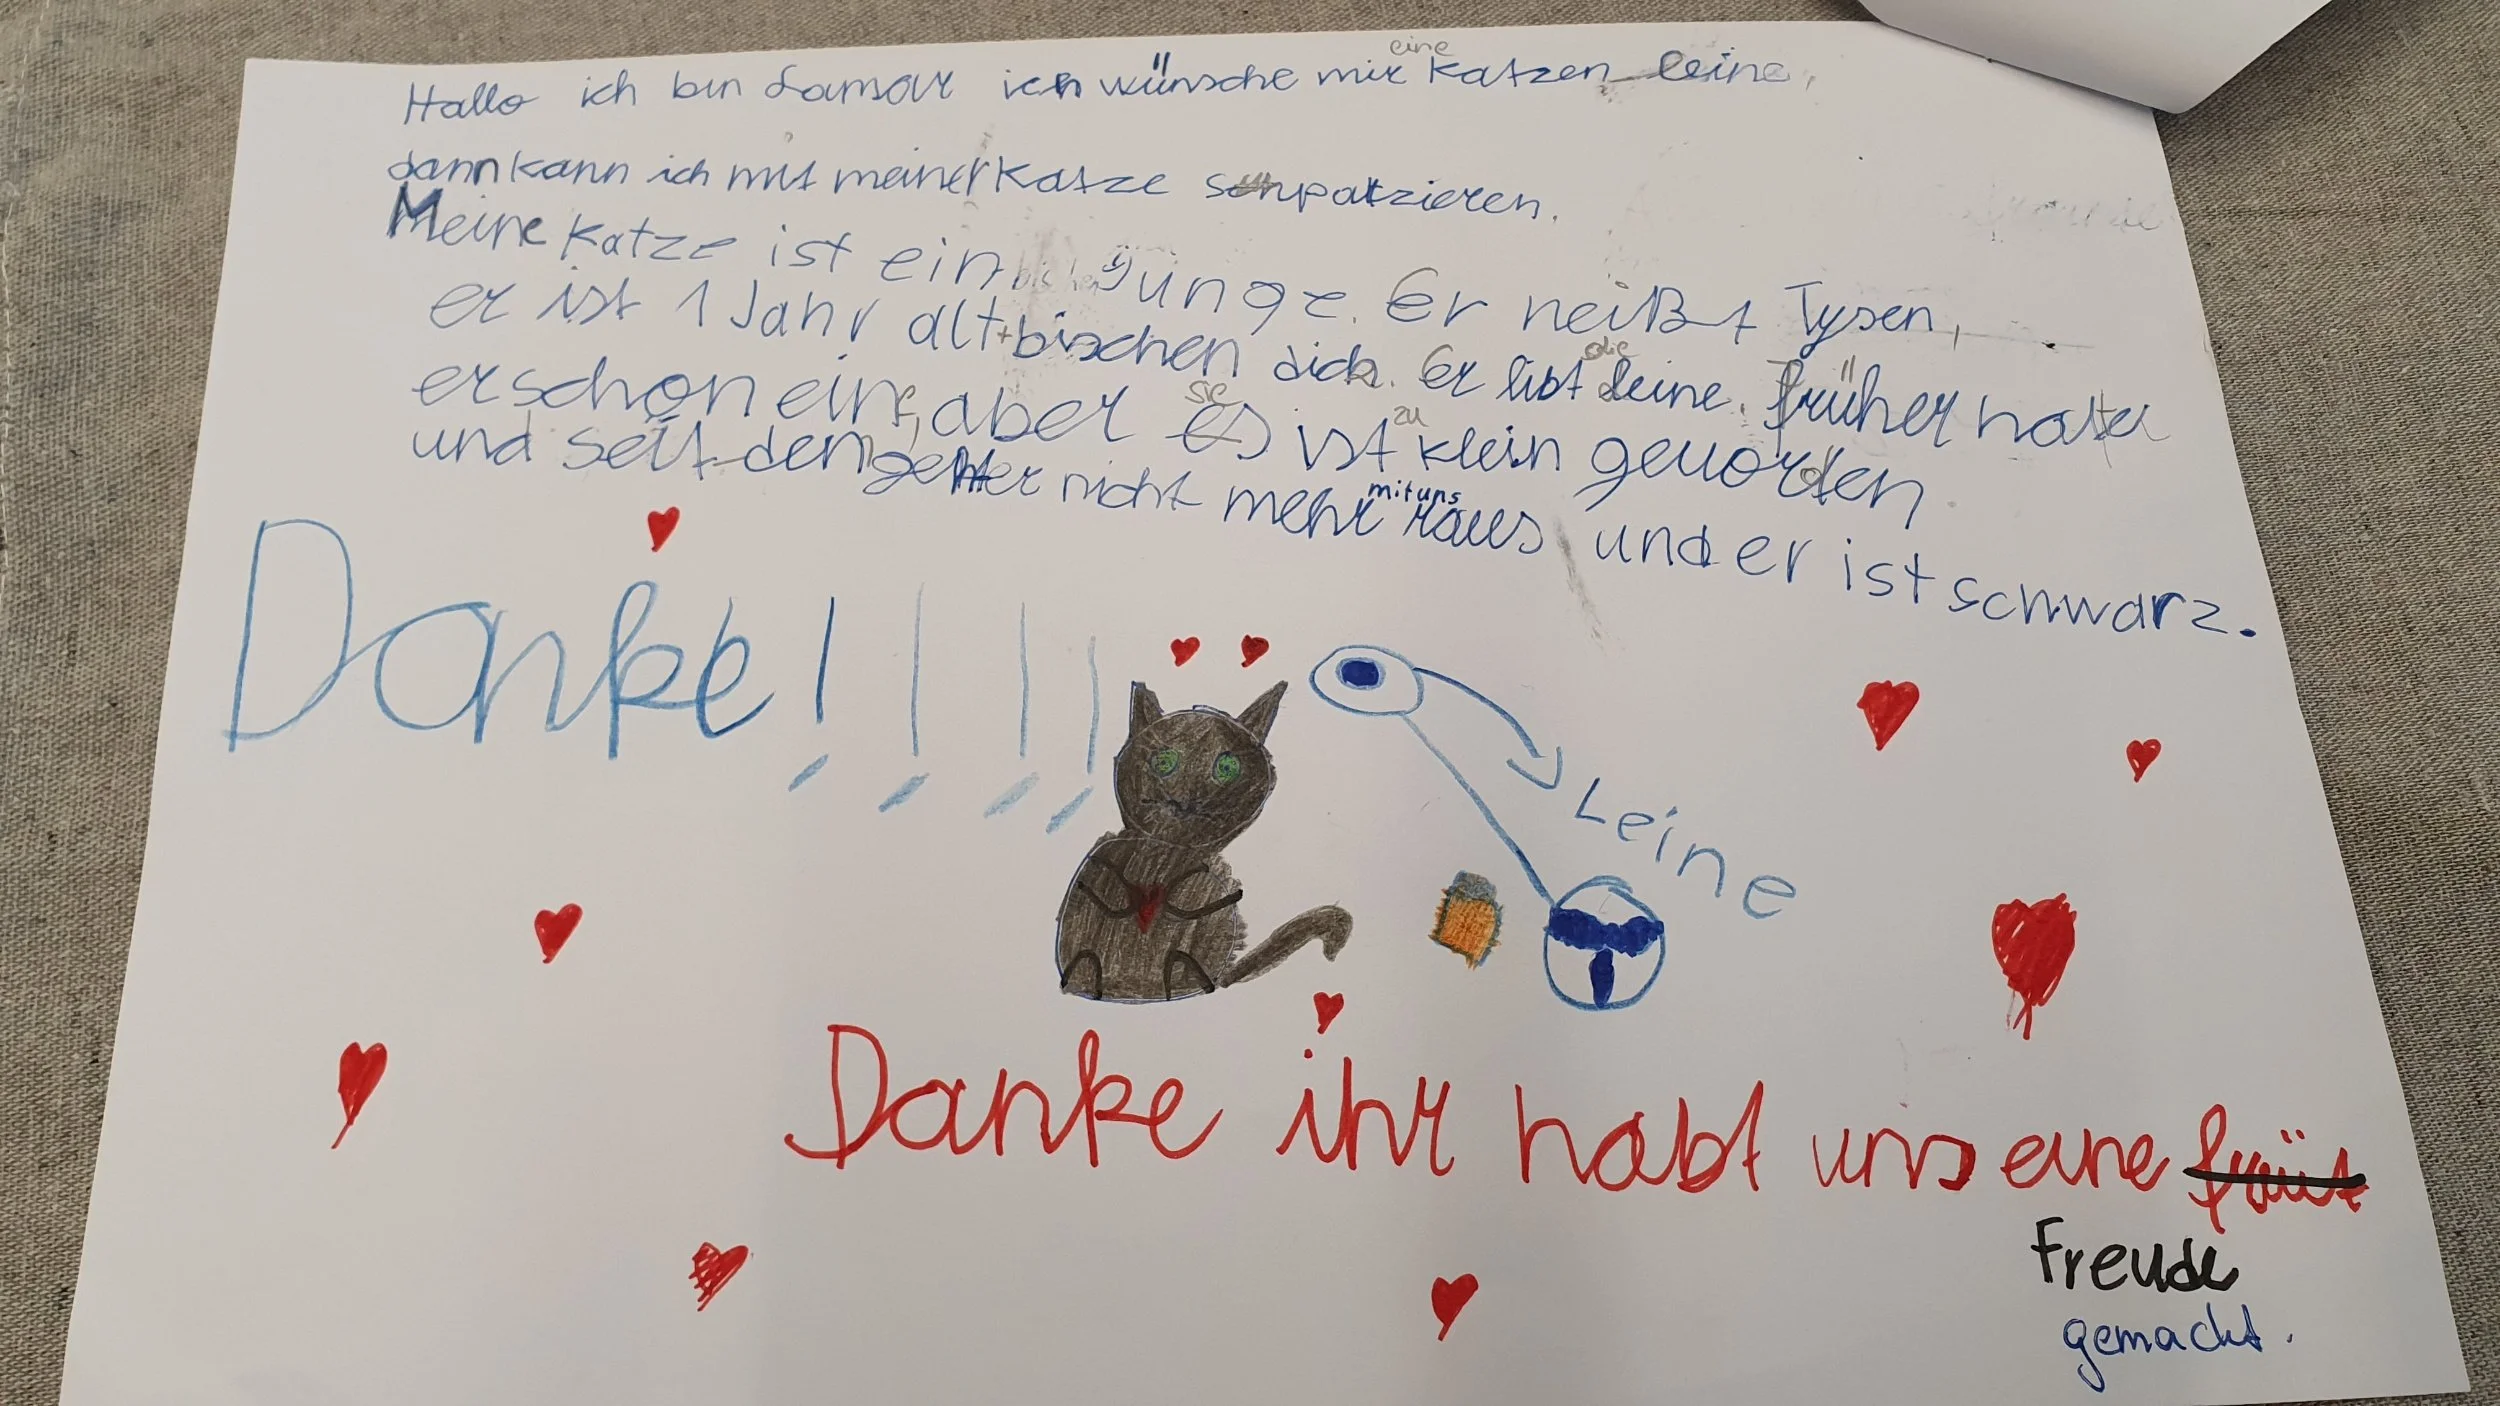 Hallo ich bin Samar ich wünsche mir eine Katzen leine,
dann kann ich mit meiner Katze spatzieren.
Meine Katze ist ein Junge. Er heißt Tysen,
er ist 1 Jahr alt + bischen dick. Er libt die leine. früher hate
er schon eine, aber sie ist zu klein geworden
und seit dem geht er nicht mehr mit uns raus und er ist schwarz.
Danke!!!!
Leine
Danke ihr habt uns eine
Freude
gemacht.